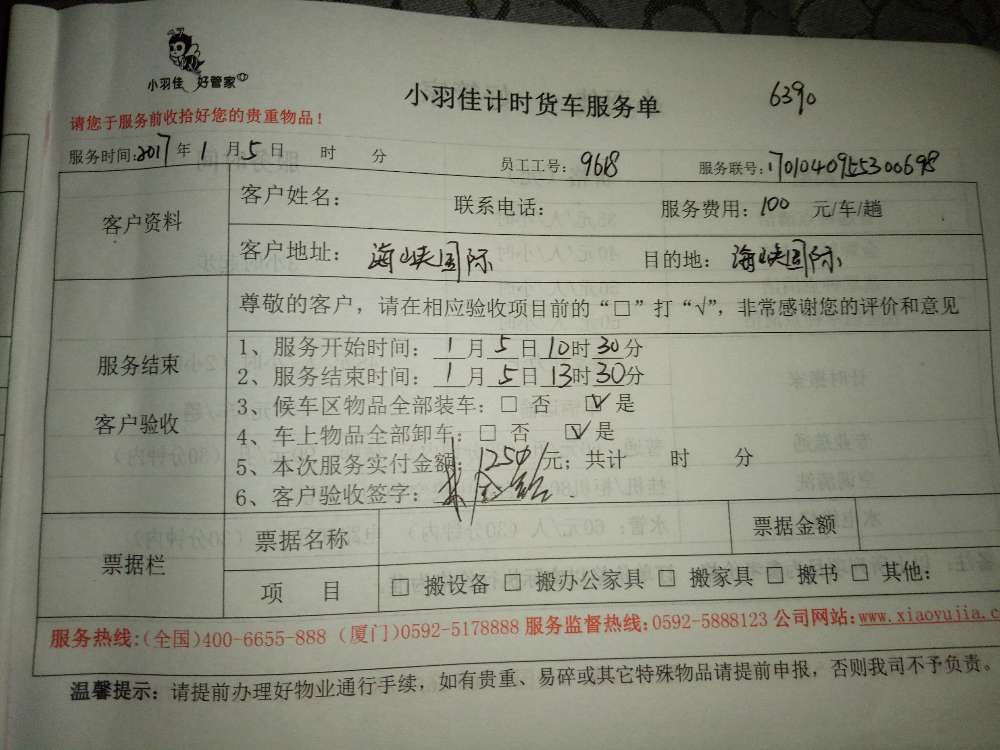 小羽佳 好管家
小羽佳计时货车服务单
6390
请您于服务前收拾好您的贵重物品！
服务时间:2017年1月5日 时 分 员工工号：9618 服务联号：1701040955300698
客户资料 客户姓名： 联系电话： 服务费用：100 元/车/趟
客户地址： 海峡国际 目的地： 海峡国际
服务结束
客户验收
尊敬的客户，请在相应验收项目前的“□”打“√”，非常感谢您的评价和意见
1、服务开始时间：1月5日10时30分
2、服务结束时间：1月5日13时30分
3、候车区物品全部装车：□ 否 ☑ 是
4、车上物品全部卸车：□ 否 ☑ 是
5、本次服务实付金额：1250元；共计 时 分
6、客户验收签字：
票据栏 票据名称 票据金额
项 目 □ 搬设备 □ 搬办公家具 □ 搬家具 □ 搬书 □ 其他：
服务热线:(全国)400-6655-888 (厦门)0592-5178888 服务监督热线:0592-5888123 公司网站:www.xiaoyujia.c
温馨提示：请提前办理好物业通行手续，如有贵重、易碎或其它特殊物品请提前申报，否则我司不予负责。